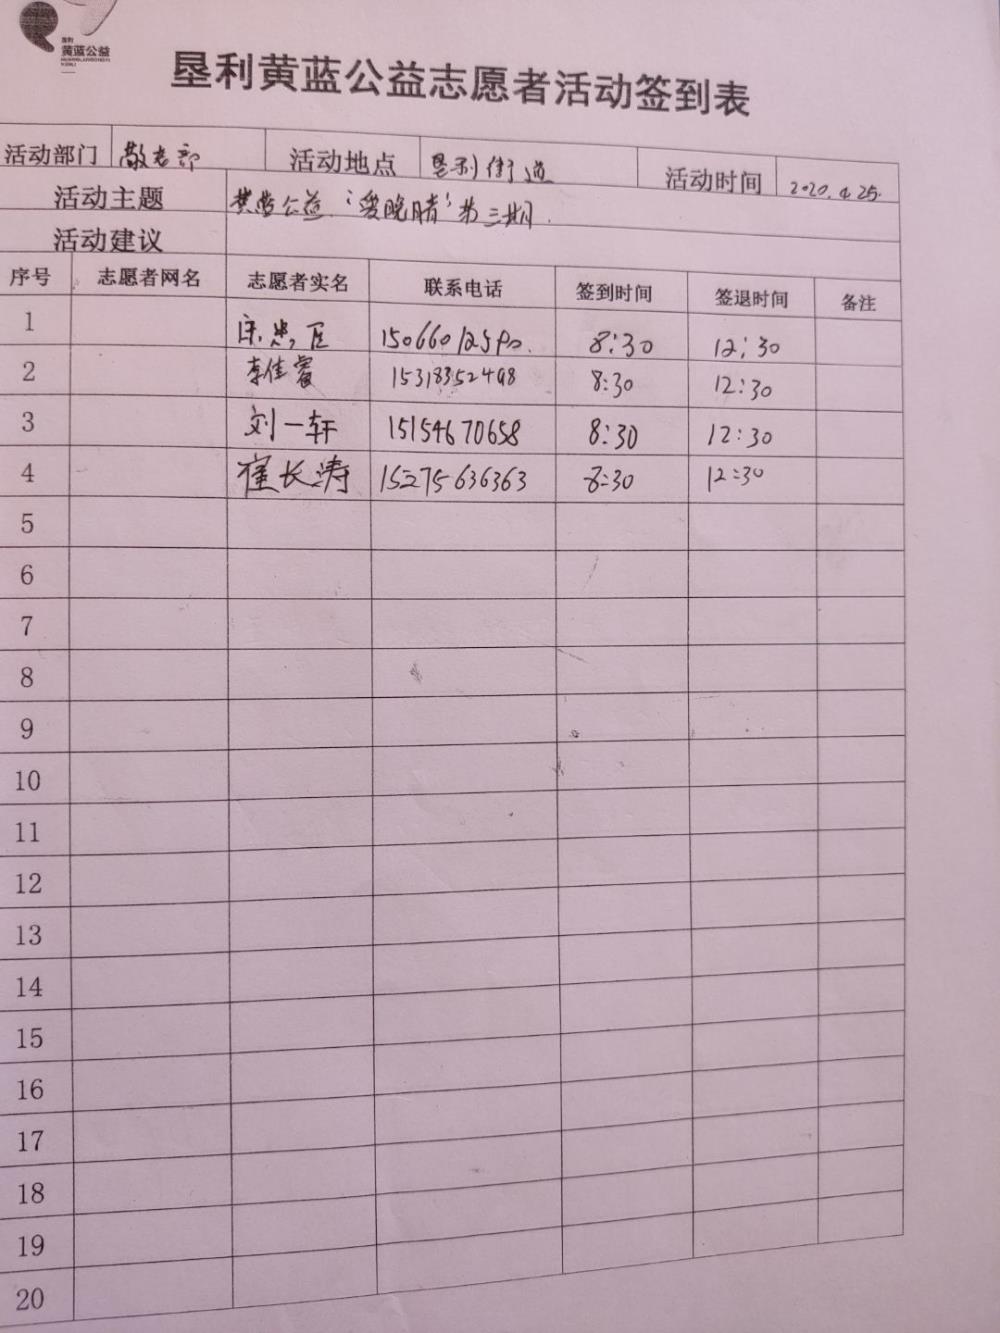 垦利
黄蓝公益
垦利黄蓝公益志愿者活动签到表
活动部门 敬老部 活动地点 垦利街道 活动时间 2020.4.25.
活动主题 黄蓝公益“爱晚晴”第三期.
活动建议
序号 志愿者网名 志愿者实名 联系电话 签到时间 签退时间 备注
1 8:30 12:30
2 李佳睿 15318352498 8:30 12:30
3 刘一轩 15154670658 8:30 12:30
4 崔长涛 15275636363 8:30 12:30
5
6
7
8
9
10
11
12
13
14
15
16
17
18
19
20